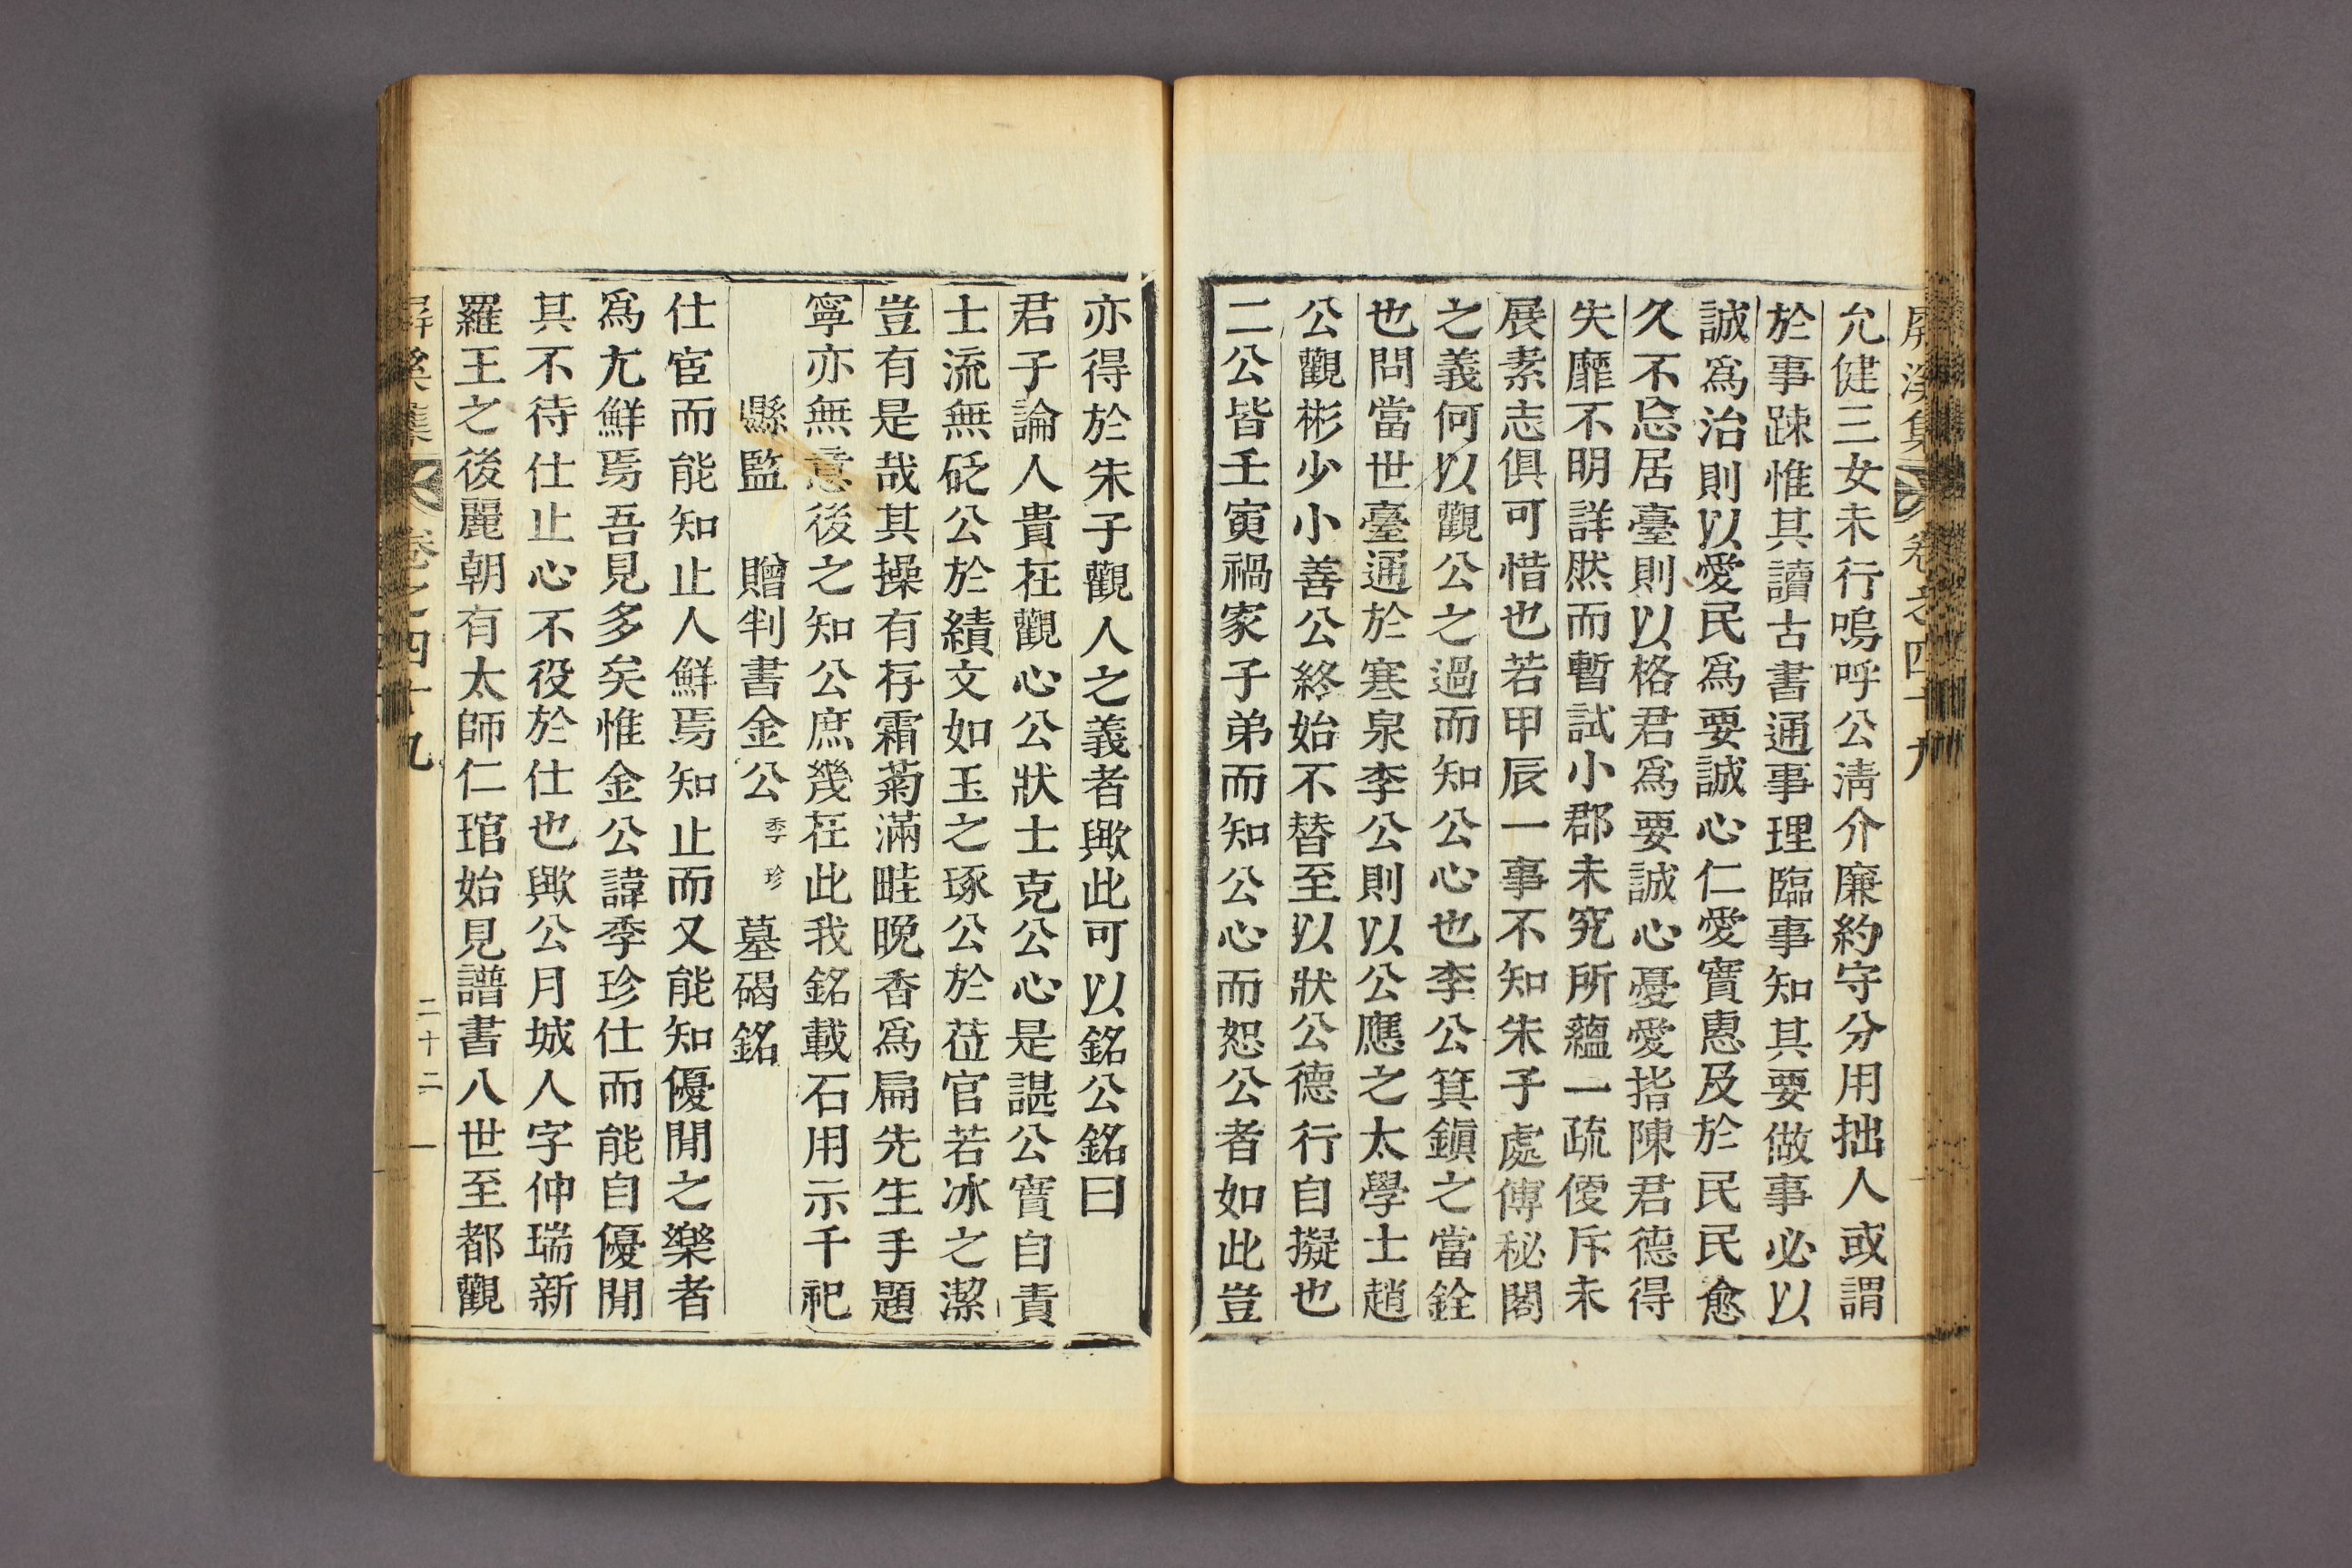 屛溪集 卷之四十九
允健三女未行嗚呼公淸介廉約守分用拙人或謂
於事踈惟其讀古書通事理臨事知其要做事必以
誠爲治則以愛民爲要誠心仁愛實惠及於民民愈
久不忘居臺則以格君爲要誠心憂愛指陳君德得
失靡不明詳然而暫試小郡未究所蘊一疏便斥未
展素志俱可惜也若甲辰一事不知朱子處傅秘閣
之義何以觀公之過而知公心也李公箕鎭之當銓
也問當世臺通於寒泉李公則以公應之太學士趙
公觀彬少小善公終始不替至以狀公德行自擬也
二公皆壬寅禍家子弟而知公心而恕公者如此豈
亦得於朱子觀人之義者歟此可以銘公銘曰
君子論人貴在觀心公狀士克公心是諶公實自責
士流無砭公於績文如玉之琢公於莅官若冰之潔
豈有是哉其操有存霜菊滿畦晩香爲扁先生手題
寧亦無意後之知公庶幾在此我銘載石用示千祀
縣監 贈判書金公季珍墓碣銘
仕宦而能知止人鮮焉知止而又能知優閒之樂者
爲尤鮮焉吾見多矣惟金公諱季珍仕而能自優閒
其不待仕止心不役於仕也歟公月城人字仲瑞新
羅王之後麗朝有太師仁琯始見譜書八世至都觀
屛溪集 卷之四十九 二十二